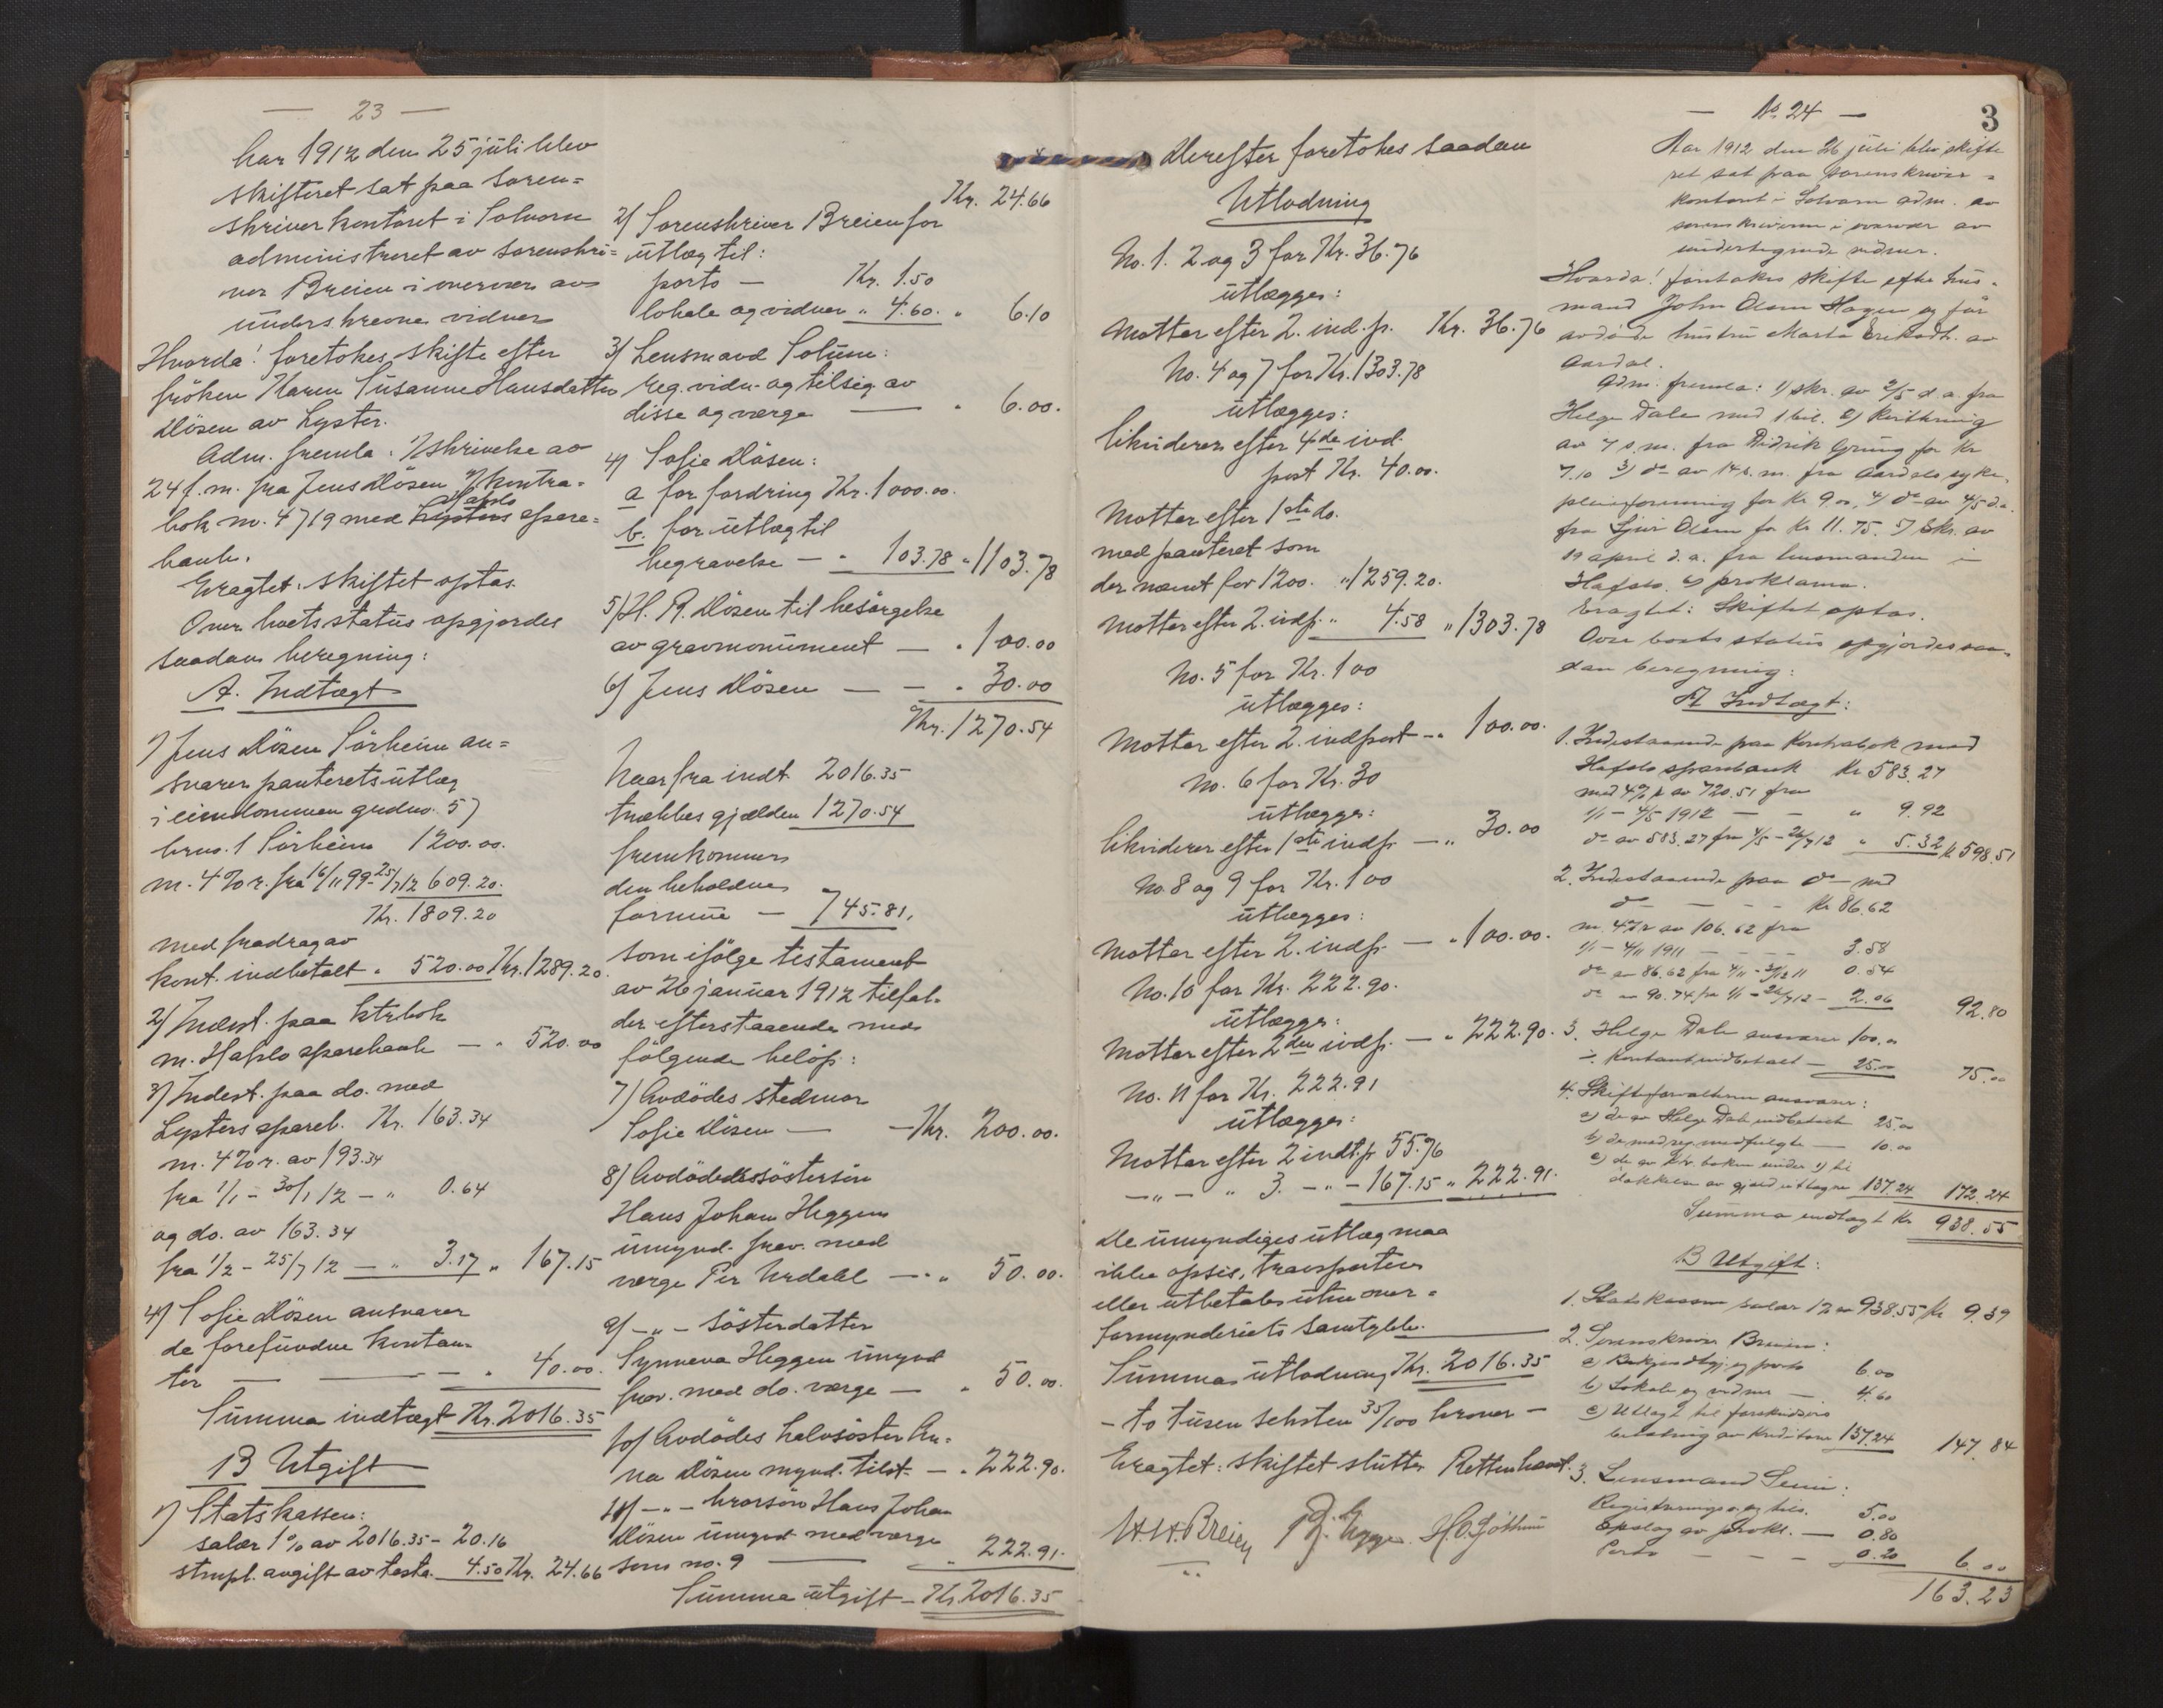 — 23 —
Aar 1912 den 25 juli blev
skifteret sat paa soren=
skriverkontoret i Solvorn
administreret av sorenskri=
ver Breien i overvær av
underskrevne vidner
Hvorda! foretokes skifte efter
fröken Karen Susanne Hansdatter
Døsen av Lyster.
Adm. fremla: 1) skrivelse av
24 f. m. fra Jens Døsen 2) kontra=
Hafslo
bok no. 4719 med Lysters spare=
bank.
Eragtet: skiftet optas.
Over boets status opgjordes
saadan beregning:
A. Indtægt
1) Jens Døsen Sørheim an=
svarer panteretsutlæg
i eiendommen gndno. 57
brno. 1 Sörheim 1200.00.
m. 4 % r. fra 16/11 99 - 25/7 12 609.20.
Kr. 1809.20
med fradrag av
kont. indbetalt „ 520.00 Kr. 1289.20.
2) Indest. paa ktrbok
m. Hafslo sparebank — „ 520.00
3) Indest. paa do. med
Lysters spareb. Kr. 163.34
m. 4 % r. av 193.34
fra 1/1 - 30/1 12 — „ 0.64
og do. av 163.34
fra 1/2 - 25/7 12 — „ 3.17 „ 167.15
4) Sofie Døsen ansvarer
de forefundne kontan-
ter — — — „ 40.00.
Summa indtægt Kr. 2016.35
B Utgift
1) Statskassen:
salær 1 % av 2016.35 - 20.16
stempl. avgift av testa. 4.50 Kr. 24.66
Kr. 24.66
2) Sorenskriver Breien for
utlæg til:
porto — Kr. 1.50
lokale og vidner „ 4.60. „ 6.10
3) Lensmand Solum:
reg. vidn. og tilsig. av
disse og værge — „ 6.00.
4) Sofie Døsen:
a for fordring Kr. 1000.00.
b. for utlæg til
begravelse — „ 103.78 „ 1103.78
5) H. R. Døsen til besörgelse
av gravmonument — „ 100.00
6) Jens Døsen — — „ 30.00
Kr. 1270.54
Naar fra indt. 2016.35
trækkes gjælden 1270.54
fremkommer
den beholdne
formue — 745.81,
som ifölge testament
av 26 januar 1912 tilfal-
der efterstaaende med
fölgende belöp:
7) Avdödes stedmor
Sofie Døsen — — Kr. 200.00.
8) Avdödes söstersön
Hans Johan Heggen
umynd. frav. med
værge Per Urdahl — „ 50.00.
9) — „ — sösterdatter
Synneva Heggen umynd
frav. med do. værge — „ 50.00.
10) Avdödes halvsöster An-
na Døsen mynd. tilst. — „ 222.90.
11) — „ — brorsön Hans Johan
Døsen umynd med værge
som no. 9 — „ 222.91.
Summa utgift — Kr. 2016.35
Derefter foretokes saadan
Utlodning
No. 1. 2 og 3 for Kr. 36.76
utlægges:
Mottar efter 2. ind. p. Kr. 36.76
No. 4 og 7 for Kr. 1303.78
utlægges:
likviderer efter 4de ind.
post Kr. 40.00.
Mottar efter 1ste do.
med panteret som
der nævnt for 1200. „ 1259.20.
Mottar efter 2. indp. „ 4.58 „ 1303.78
No. 5 for Kr. 100
utlægges:
Mottar efter 2. indpost — „ 100.00.
No. 6 for Kr. 30
utlægges:
likviderer efter 1ste indp. — „ 30.00
No. 8 og 9 for Kr. 100
utlægges:
Mottar efter 2. indp. — „ 100.00.
No. 10 for Kr. 222.90.
utlægges:
Mottar efter 2den indp. — „ 222.90.
No. 11 for Kr. 222.91
utlægges:
Mottar efter 2 indt. p. 55.76
— „ — „ 3. — „ — 167.15 „ 222.91.
De umyndiges utlæg maa
ikke opsies, transporteres
eller utbetales uten over=
formynderiets samtykke.
Summa utlodning Kr. 2016.35
— to tusen seksten 35/100 kroner —
Eragtet: skiftet slutter Retten hævet.
H. H. Breien
3
— No. 24 —
Aar 1912 den 26 juli blev skifte
ret sat paa sorenskriver=
kontoret i Solvorn adm. av
sorenskriveren i overvær av
undertegnede vidner.
Hvorda! foretokes skifte efter hus=
mand John Olsen Hagen og før
avdøde hustru Marta Eriksdt. av
Aardal.
Adm. fremla: 1) skr. av 2/5 d. a. fra
Helge Dale med 1 bil. 2) Kvittering
av 7 s. m. fra Didrik Grung for Kr
7.10 3) do av 14 s. m. fra Aardals syke-
pleieforening for Kr 9.00, 4) do av 4/5 d. a.
fra Sjur Olsen for Kr 11.75. 5) Skr. av
19 april d. a. fra lensmanden i
Hafslo. 6) proklama.
Eragtet: Skiftet optas.
Over boets status opgjordes saa-
dan beregning:
A Indtægt:
1. Indestaaende paa Kontrabok med
Hafslo sparebank Kr 583.27
med 4 % r av 720.51 fra
1/1 - 4/5 1912 — — „ 9.92
do av 583.27 fra 4/5 - 26/7 12 „ 5.32 Kr 598.51
2. Indestaaende paa do med
do — — — Kr 86.62
m. 4 % r av 106.62 fra
1/1 - 4/11 1911 — — — 3.58
do av 86.62 fra 4/11 - 31/12 11 0.54
do av 90.74 fra 1/1 - 26/7 12 — 2.06 92.80
3. Helge Dale ansvarer 100.00
÷ Kontant indbetalt — 25.00 75.00
4. Skifteforvalteren ansvarer:
a) de av Helge Dale indbetalte 25.00
b) de med reg. medfulgte — 10.00
c) de av Ktr. boken under 1) til
dækkelse av gjæld uttagne 137.24 172.24
Summa indtægt Kr 938.55
B Utgift:
1. Statskassen salær 1 % av 938.55 Kr 9.39
2. Sorenskriver Breien:
a) Bekjendtgj. og porto 6.00
b) Lokale og vidner — 4.60
c) Utlagt til forskudsvis
betaling av Kreditorer 137.24 147.84
3. Lensmand Semi:
Registrering og tils. 5.00
Opslag av prokl. — 0.80
Porto — — — 0.20 6.00
163.23